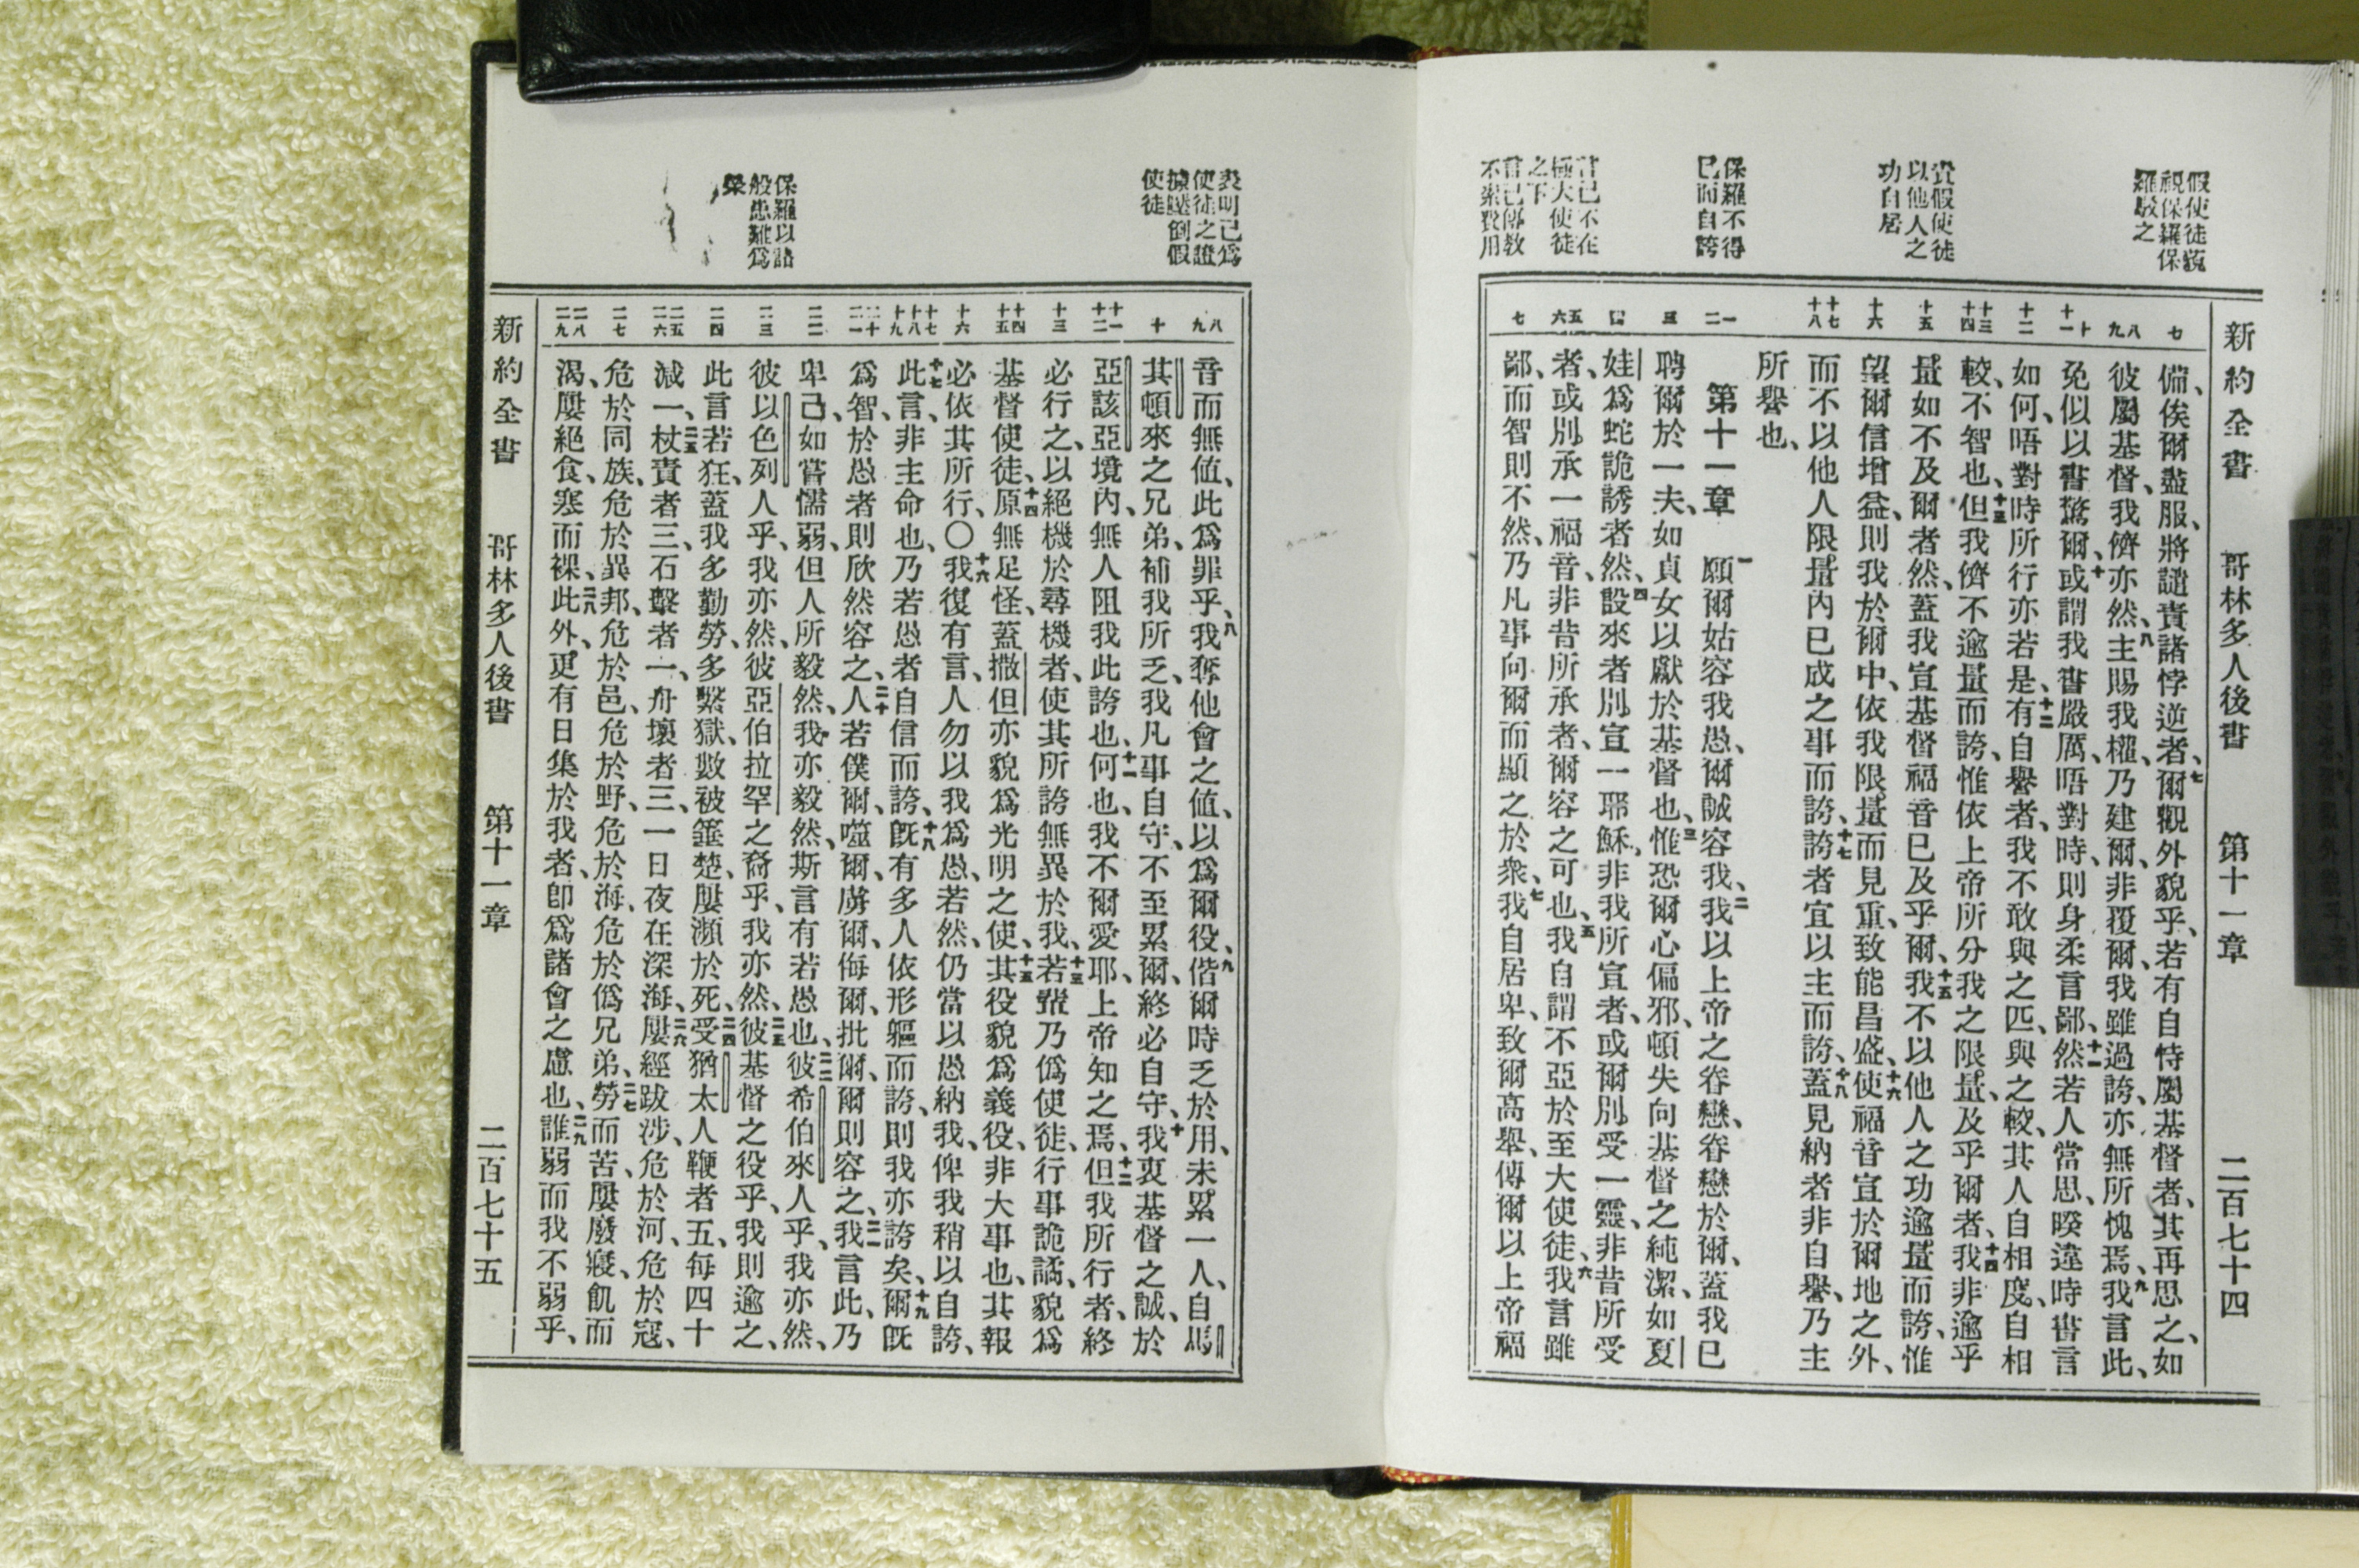 新約全書 哥林多人後書 第十一章 二百七十四
假使徒藐
視保羅保
羅駁之
責假使徒
以他人之
功自居
保羅不得
已而自誇
言已不在
極大使徒
之下
言已傳教
不索費用
七 八 九 十 十一 十二 十三 十四 十五 十六 十七 十八 一 二 三 四 五 六 七
備、俟爾盡服、將譴責諸悖逆者、七爾觀外貌乎、若有自恃屬基督者、其再思之、如
彼屬基督、我儕亦然、八主賜我權、乃建爾、非覆爾、我雖過誇、亦無所愧焉、九我言此、
免似以書驚爾、十或謂我書嚴厲、晤對時、則身柔言鄙、十一然若人當思、暌違時書言
如何、晤對時所行亦若是、十二有自譽者、我不敢與之匹、與之較、其人自相度、自相
較、不智也、十三但我儕不逾量而誇、惟依上帝所分我之限量、及乎爾者、十四我非逾乎
量、如不及爾者然、蓋我宣基督福音已及乎爾、十五我不以他人之功逾量而誇、惟
望爾信增益、則我於爾中、依我限量而見重、致能昌盛、十六使福音宣於爾地之外、
而不以他人限量內已成之事而誇、十七誇者宜以主而誇、十八蓋見納者非自譽、乃主
所譽也、
第十一章 一願爾姑容我愚、爾誠容我、二我以上帝之眷戀、眷戀於爾、蓋我已
聘爾於一夫、如貞女以獻於基督也、三惟恐爾心偏邪、頓失向基督之純潔、如夏
娃爲蛇詭誘者然、四設來者別宣一耶穌、非我所宣者、或爾別受一靈、非昔所受
者、或別承一福音、非昔所承者、爾容之可也、五我自謂不亞於至大使徒、六我言雖
鄙、而智則不然、乃凡事向爾而顯之於衆、七我自居卑、致爾高舉、傳爾以上帝福
表明已爲
使徒之證
據壓倒假
使徒
保羅以諸
般患難爲
榮
八 九 十 十一 十二 十三 十四 十五 十六 十七 十八 十九 二十 二一 二二 二三 二四 二五 二六 二七 二八 二九
音而無値、此爲罪乎、八我奪他會之値、以爲爾役、九偕爾時乏於用、未累一人、自馬
其頓來之兄弟、補我所乏、我凡事自守、不至累爾、終必自守、十我衷基督之誠、於
亞該亞境內、無人阻我此誇也、十一何也、我不爾愛耶、上帝知之焉、十二但我所行者、終
必行之、以絕機於尋機者、使其所誇無異於我、十三若輩乃僞使徒、行事詭譎、貌爲
基督使徒、十四原無足怪、蓋撒但亦貌爲光明之使、十五其役貌爲義役、非大事也、其報
必依其所行、〇十六我復有言、人勿以我爲愚、若然、仍當以愚納我、俾我稍以自誇、
十七此言、非主命也、乃若愚者自信而誇、十八既有多人依形軀而誇、則我亦誇矣、十九爾既
爲智、於愚者則欣然容之、二十人若僕爾、噬爾、虜爾、侮爾、批爾、爾則容之、二一我言此、乃
卑己、如嘗懦弱、但人所毅然、我亦毅然、斯言有若愚也、二二彼希伯來人乎、我亦然、
彼以色列人乎、我亦然、彼亞伯拉罕之裔乎、我亦然、二三彼基督之役乎、我則逾之、
此言若狂、蓋我多勤勞、多繫獄、數被箠楚、屢瀕於死、二四受猶太人鞭者五、每四十
減一、二五杖責者三、石擊者一、舟壞者三、一日夜在深海、二六屢經跋涉、危於河、危於寇、
危於同族、危於異邦、危於邑、危於野、危於海、危於僞兄弟、二七勞而苦、屢廢寢、飢而
渴、屢絕食、寒而裸、二八此外、更有日集於我者、卽爲諸會之慮也、二九誰弱而我不弱乎、
新約全書 哥林多人後書 第十一章 二百七十五